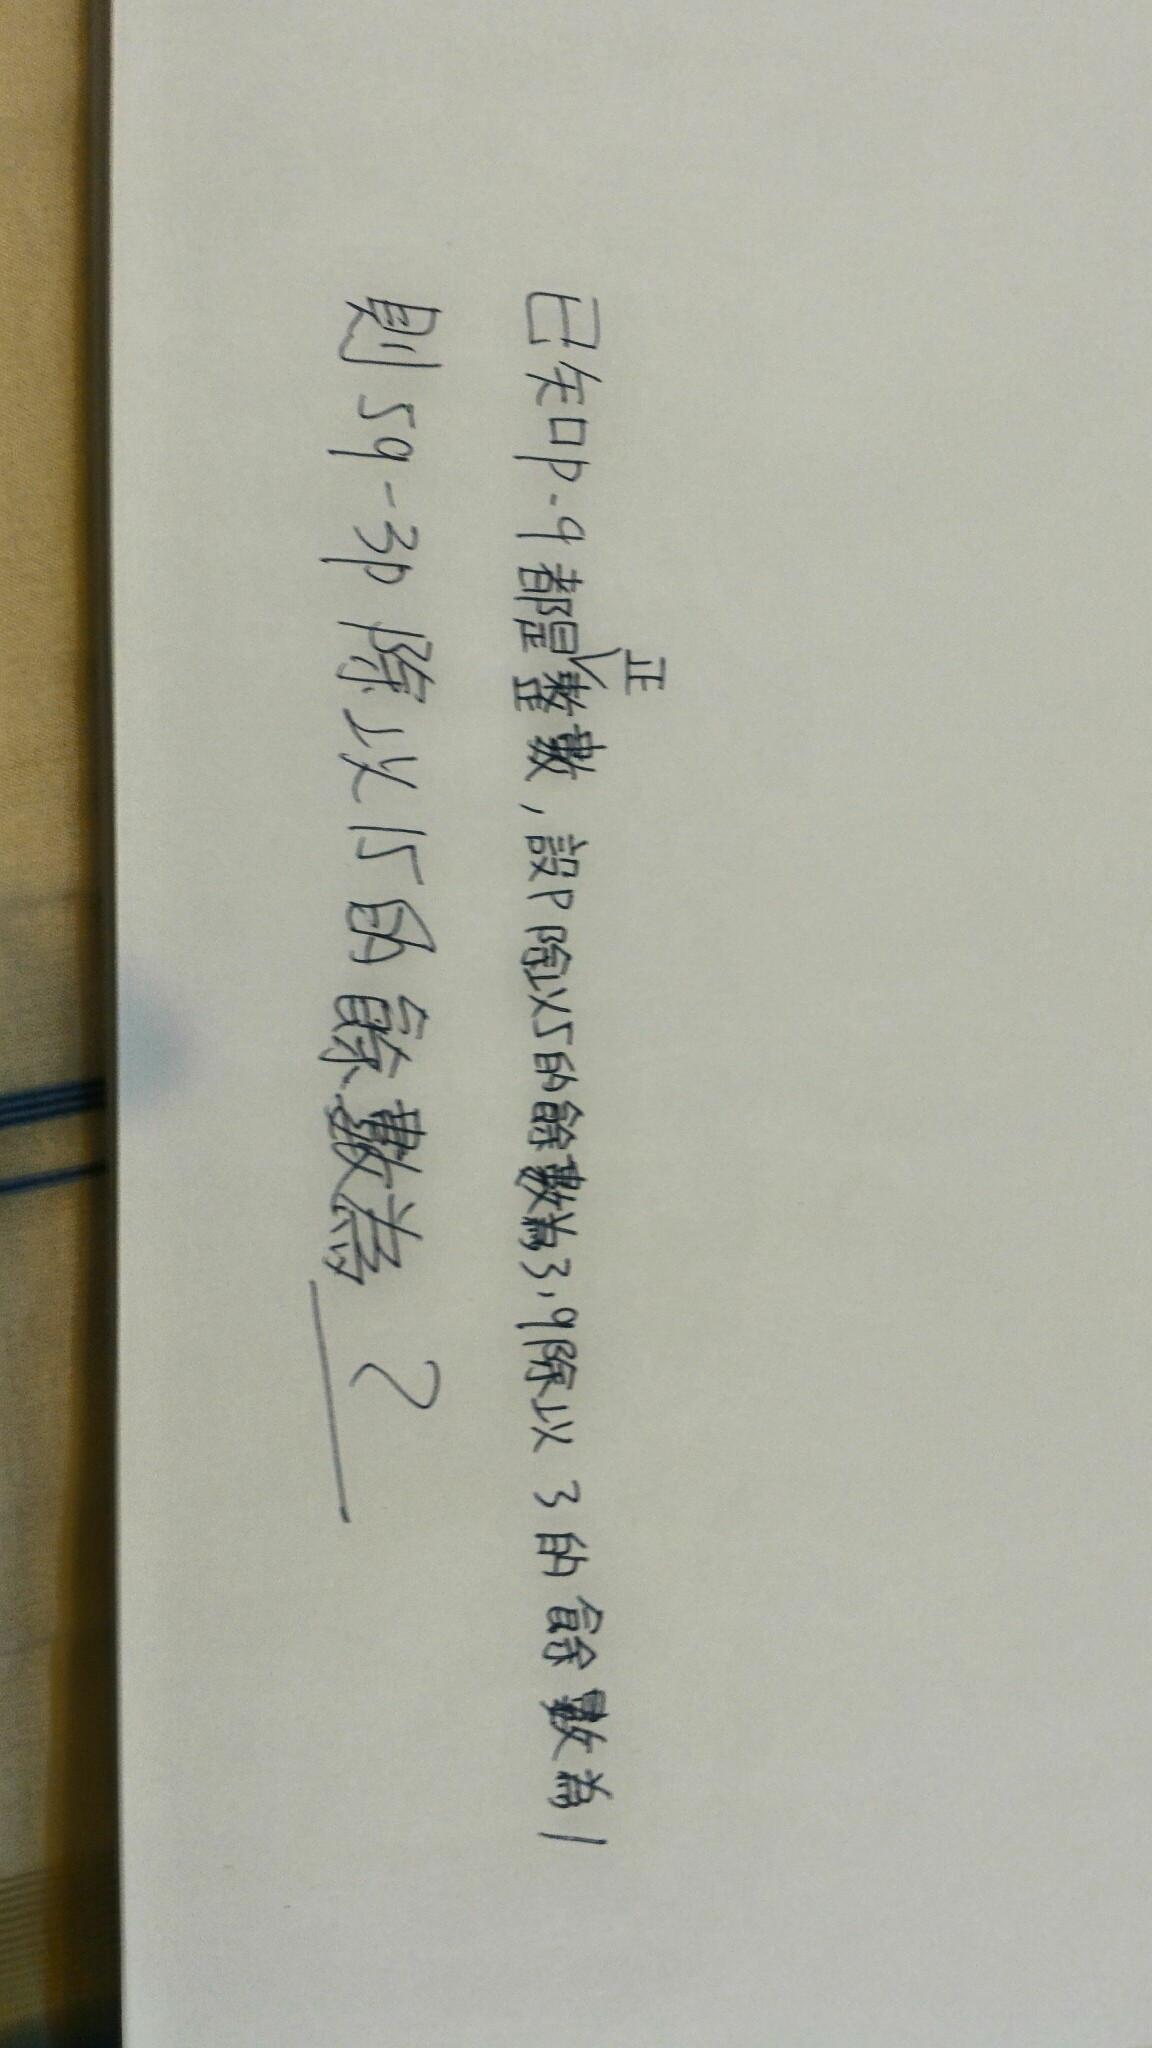 已知p、q都是正整數，設p除以5的餘數為3，q除以3的餘數為1
則5q-3p除以15的餘數為 ?